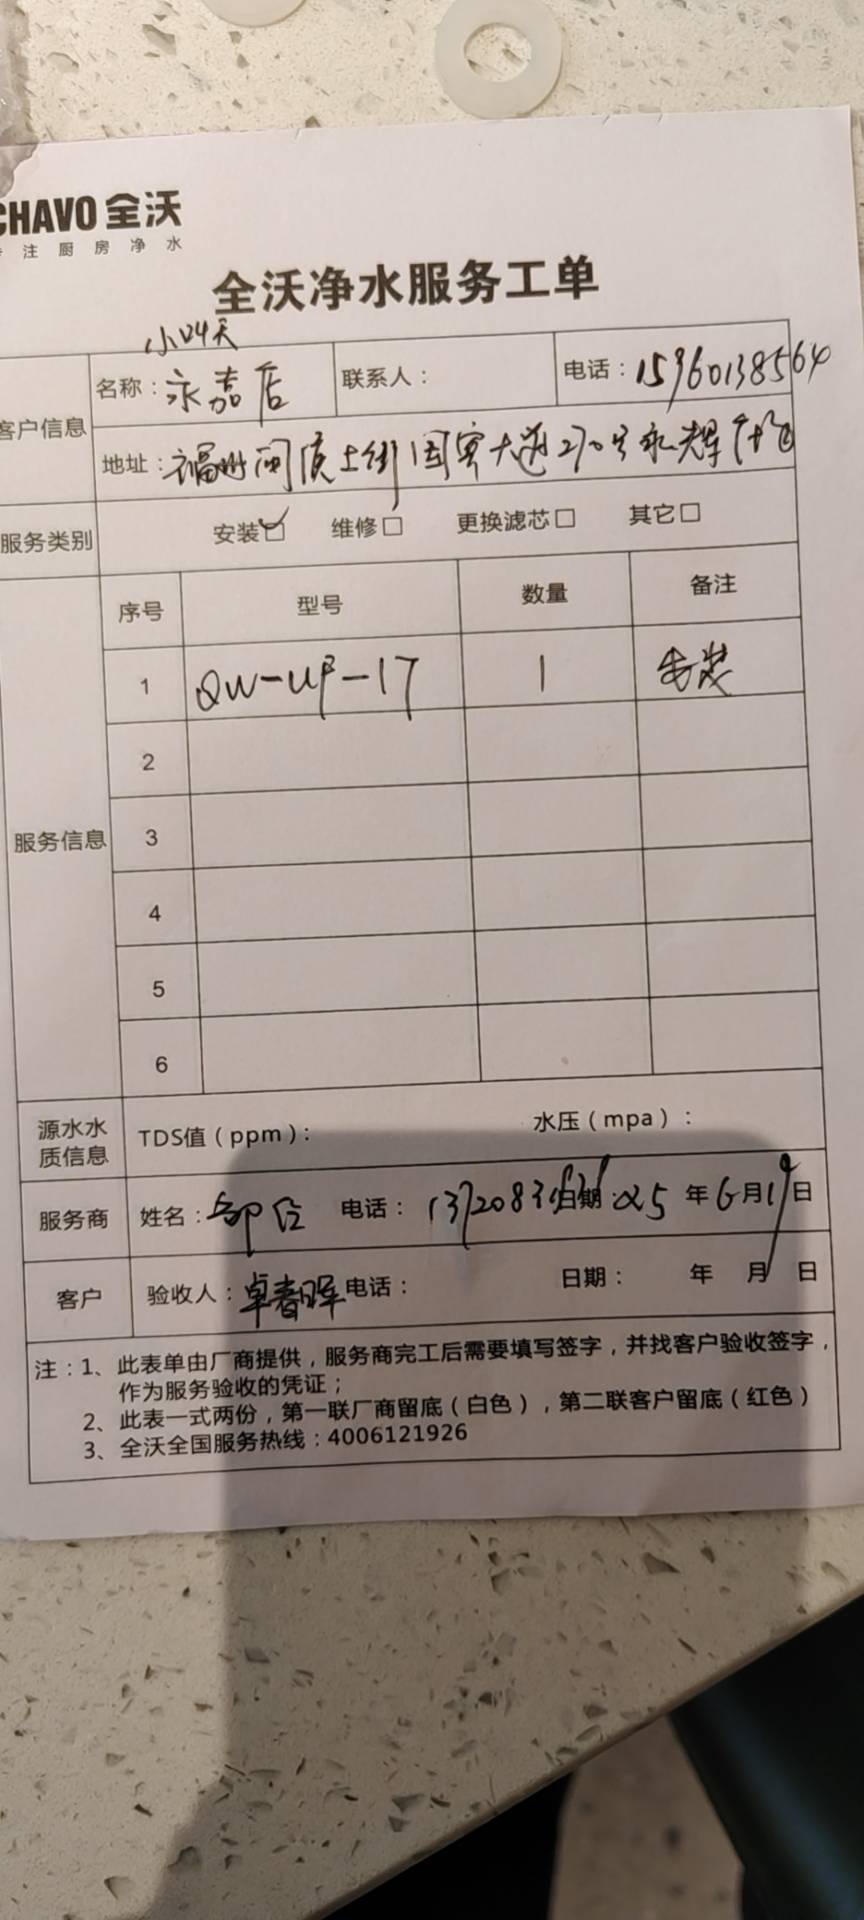 CHAVO 全沃
注厨房净水
全沃净水服务工单
客户信息
名称：永嘉店 联系人： 电话：15960138564
地址：福州闽侯上街国宾大道270号永辉
服务类别 安装☑ 维修□ 更换滤芯□ 其它□
服务信息
序号 型号 数量 备注
1 QW-UP-17 1 安装
2
3
4
5
6
源水水质信息 TDS值（ppm）： 水压（mpa）：
服务商 姓名： 电话： 日期：25 年 6 月 19 日
客户 验收人：卓春晖 电话： 日期： 年 月 日
注：1、此表单由厂商提供，服务商完工后需要填写签字，并找客户验收签字，
作为服务验收的凭证；
2、此表一式两份，第一联厂商留底（白色），第二联客户留底（红色）
3、全沃全国服务热线：4006121926